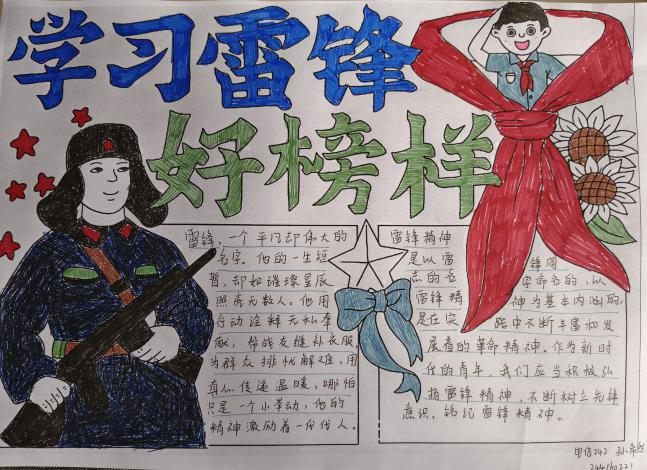 学习雷锋
好榜样
雷锋，一个平凡却伟大的
名字。他的一生短
暂，却如璀璨星辰
照亮无数人。他用
行动诠释无私奉
献，帮战友缝补衣服
为群众排忧解难，用
真心传递温暖，哪怕
只是一个小举动，他的
精神激励着一代代人。
雷锋精神
是以雷锋同
志的名字命名的，以
雷锋精神为基本内涵的，
是在实践中不断丰富和发
展着的革命精神。作为新时
代的青年，我们应当积极弘
扬雷锋精神，不断树立先锋
意识、铭记雷锋精神。
电信242